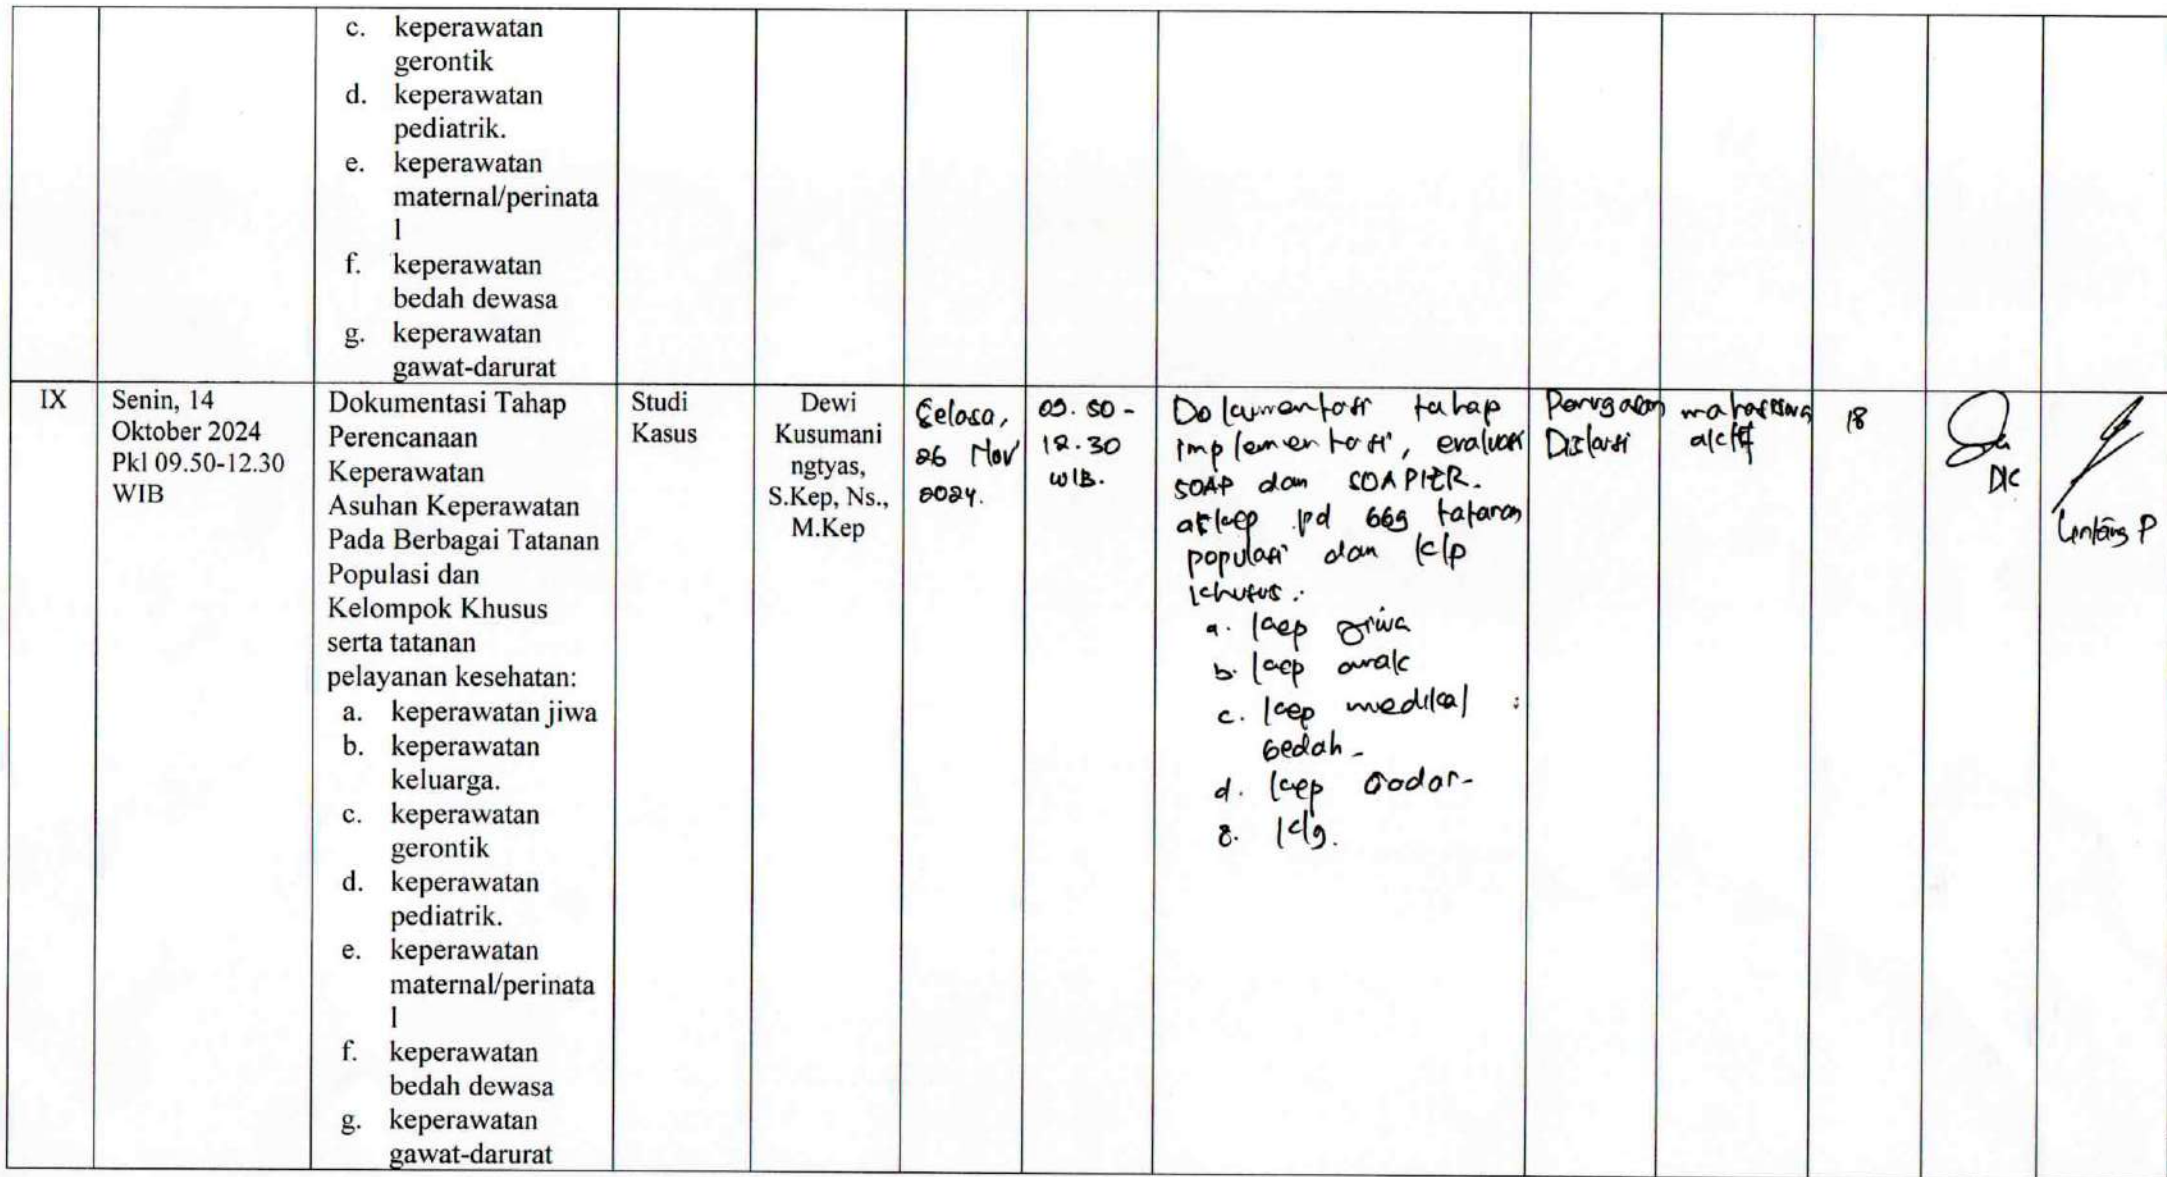 c. keperawatan
gerontik
d. keperawatan
pediatrik.
e. keperawatan
maternal/perinata
l
f. keperawatan
bedah dewasa
g. keperawatan
gawat-darurat
IX
Senin, 14
Oktober 2024
Pkl 09.50-12.30
WIB
Dokumentasi Tahap
Perencanaan
Keperawatan
Asuhan Keperawatan
Pada Berbagai Tatanan
Populasi dan
Kelompok Khusus
serta tatanan
pelayanan kesehatan:
a. keperawatan jiwa
b. keperawatan
keluarga.
c. keperawatan
gerontik
d. keperawatan
pediatrik.
e. keperawatan
maternal/perinata
l
f. keperawatan
bedah dewasa
g. keperawatan
gawat-darurat
Studi
Kasus
Dewi
Kusumani
ngtyas,
S.Kep, Ns.,
M.Kep
Selasa,
26 Nov
2024.
09.50 -
12.30
WIB.
Dokumentasi tahap
implementasi, evaluasi
SOAP dan SOAPIER.
askep pd bbg tatanan
populasi dan klp
khusus :
a. kep jiwa
b. kep anak
c. kep medikal
bedah -
d. kep Gadar -
klg.
Penugasan
Diskusi
mahasiswa
aktif
18
DK
Lintang P